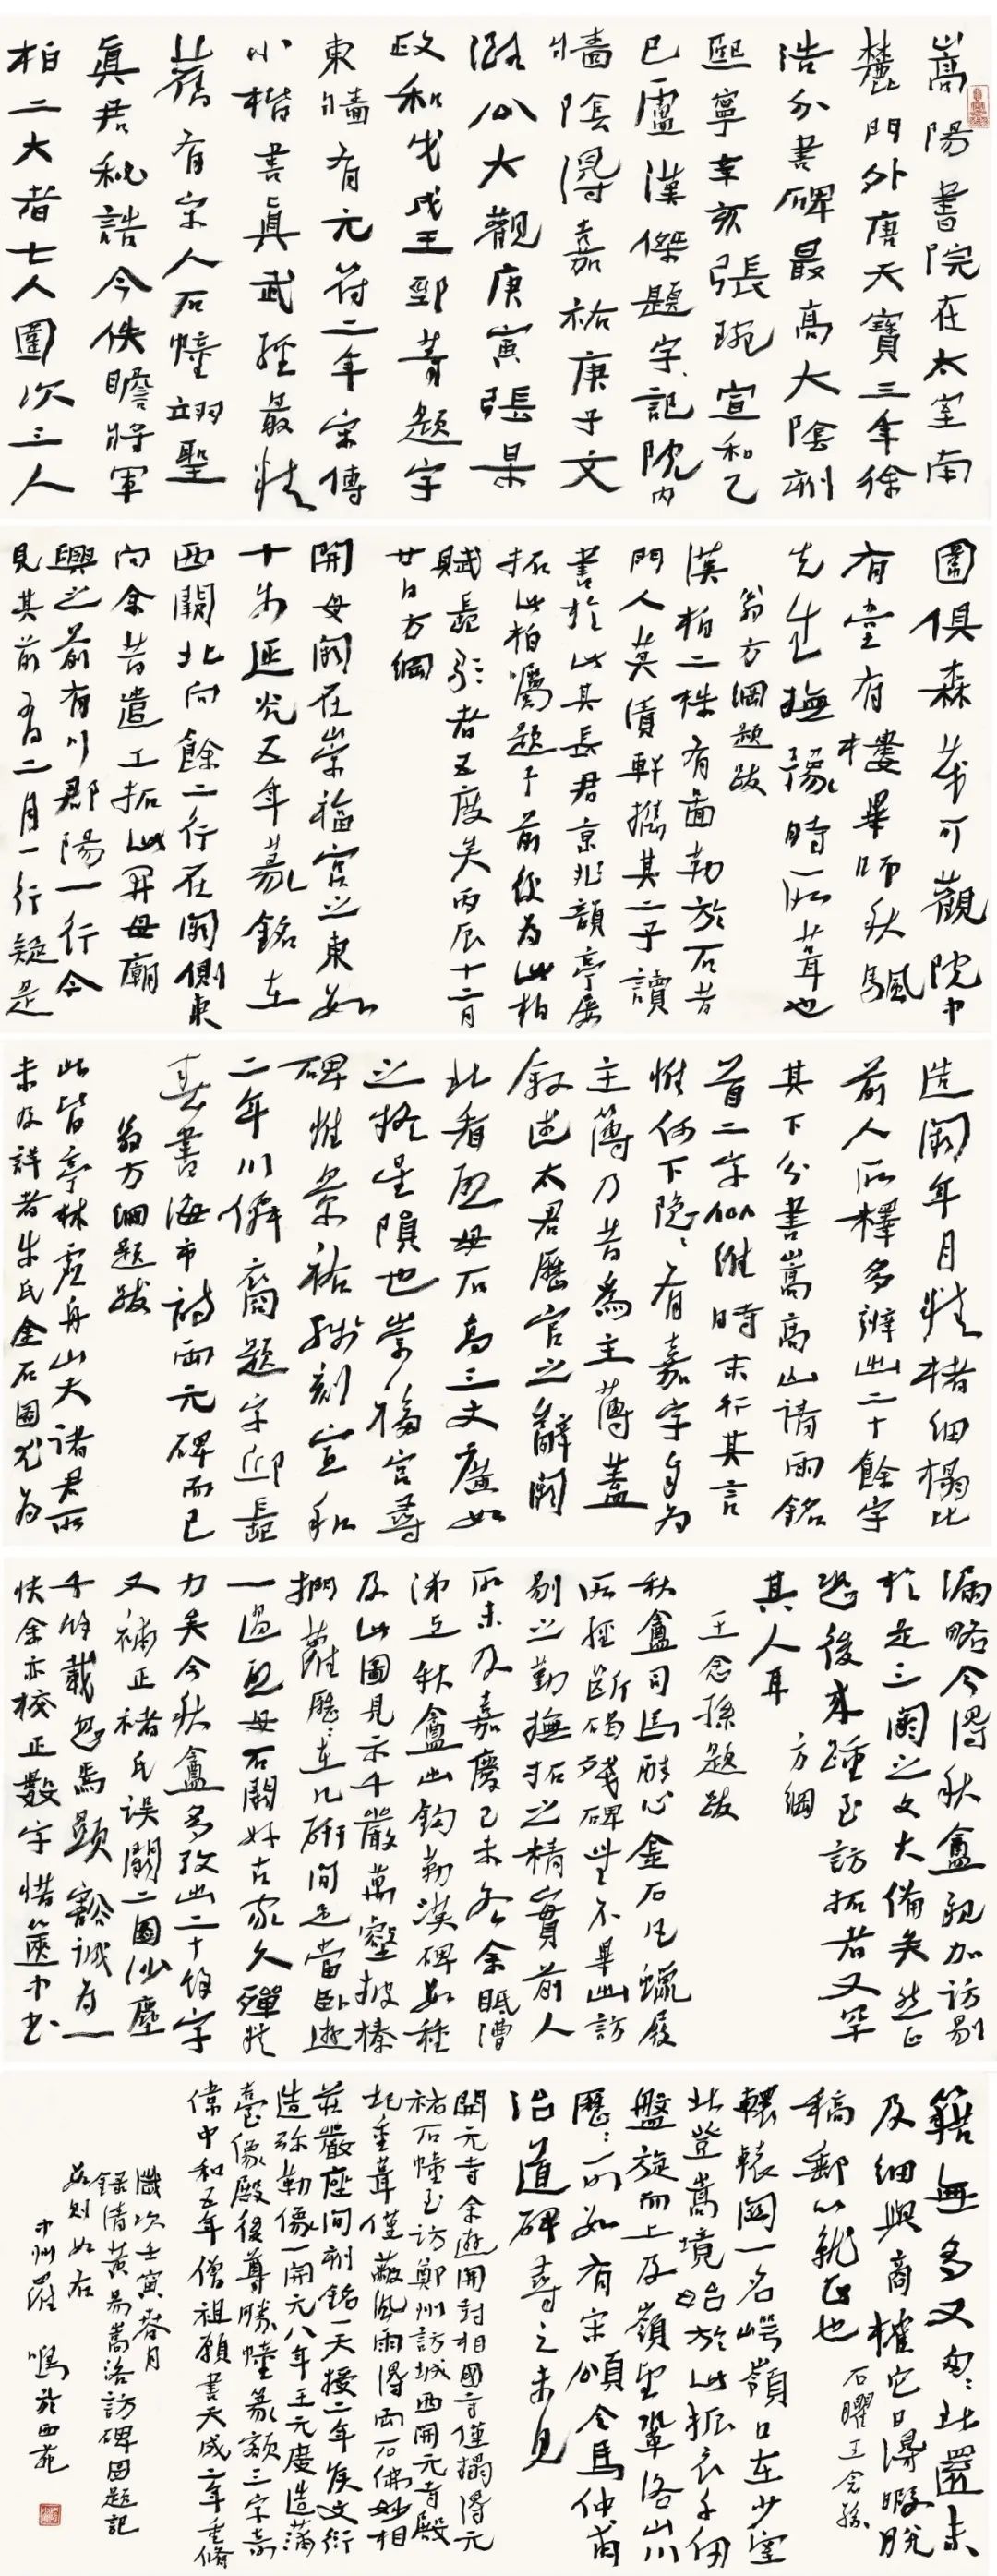 嵩陽書院在太室南
麓門外唐天寶三年徐
浩分書碑最高大陰刻
熙寧辛亥張琬宣和乙
巳盧漢傑題字記院內
牆陰得嘉祐庚子文
潞公大觀庚寅張杲
政和戊戌王郢等題字
東牆有元符二年宋傳
小楷書真武經最精
舊有宋人石幢翊聖
真君秘誥今佚瞻將軍
柏二大者七人圍次三人
圍俱森茂可觀院中
有堂有樓畢師秋颿
先生撫豫時所葺也
翁方綱題跋
漢柏二株有畫勒於石昔
門人黃漬軒攜其二子讀
書於此其長君京兆韻亭屢
拓此柏囑題予前後為此柏
賦長歌者五度矣丙辰十二月
廿日方綱
開母闕在崇福宮之東如
十步延光五年篆銘在
西闕北向餘二行在闕側東
向余昔遣工拓此開母廟
興之前有川郡陽一行今
見其前有二月一行疑是
造闕年月精楮細榻比
前人所釋多辨出二十餘字
其下分書嵩高山請雨銘
首二字似維時末行其言
惟何下隱隱有嘉字自為
主簿乃昔為主薄蓋
敘述太君歷官之辭闕
北看啟母石高三丈廣如
之將星隕也崇福宮尋
碑惟景祐殘刻宣和
二年川僻裔題字邱長
春書海市詩兩元碑而已
翁方綱題跋
此皆亭林虛舟山夫諸君所
未及詳者朱氏金石圖尤為
漏略今得秋盦親加訪剔
於是三闕之文大備矣然正
恐後來踵至訪拓者又罕
其人耳 方綱
王念孫題跋
秋盦司馬醉心金石凡蠟屐
所經斷碣殘碑無不畢出訪
剔之勤撫拓之精實前人
所未及嘉慶己未冬余眂漕
沛上秋盦出鈎勒漢碑如種
及此圖見示千巖萬壑披榛
捫蘿歷歷在几硏間足當臥遊
一過啟母石闕好古家久殫於
力矣今秋盦多攷出二十餘字
又補正褚氏誤闕二圖沙塵
千餘載忽焉顯豁誠為一
快余亦校正數字惜篋中書
籍無多又匆匆北還未
及細與商榷它日得暇脫
稿郵以就正也
石臞王念孫
轘轅闕一名崿嶺口在少室
北登嵩境始於此振衣千仞
盤旋而上及嶺望鞏洛山川
歷歷可數有宋頌令馬仲甫
治道碑尋之未見
開元寺余遊開封相國寺僅搨得元
祐石幢至訪鄭州訪城西開元寺殿
圮重葺僅蔽風雨得兩石佛妙相
莊嚴座間刻銘一天授二年侯文衍
造弥勒像一開元八年王元度造菩
臺像殿後尊勝幢篆額三字奇
偉中和五年僧祖願書天成二年重脩
歲次壬寅春月
錄清黃易嵩洛訪碑圖題記
数則如右
中州 羅鳴於西苑